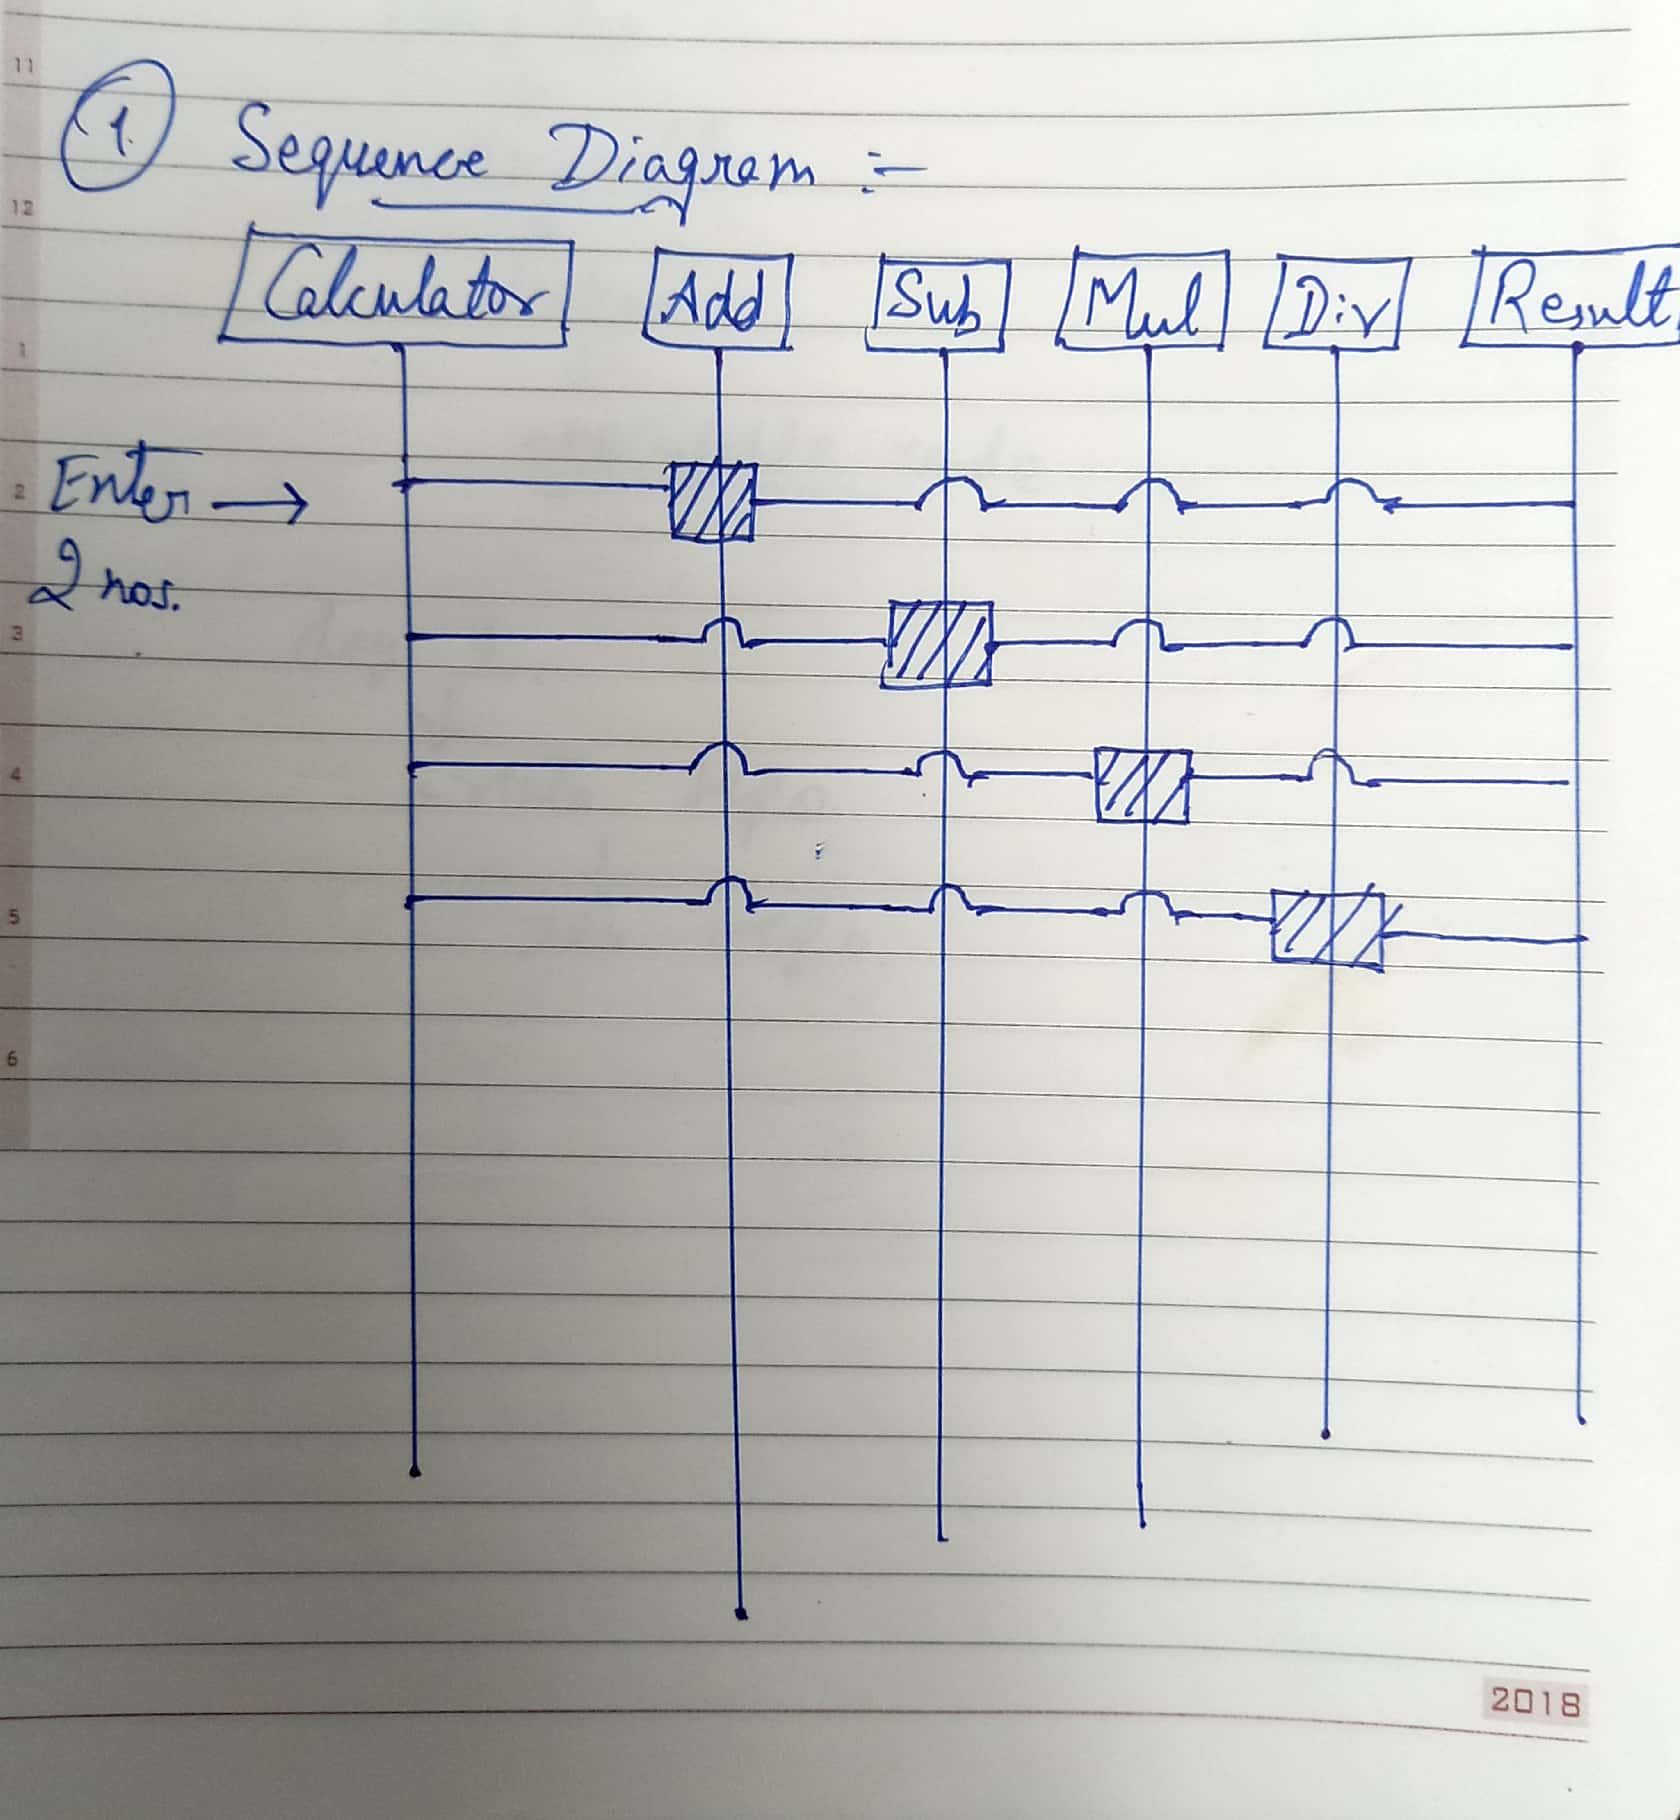 11
1. Sequence Diagram :-
12
Calculator Add Sub Mul Div Result
1
2 Enter →
2 nos.
3
4
5
6
2018